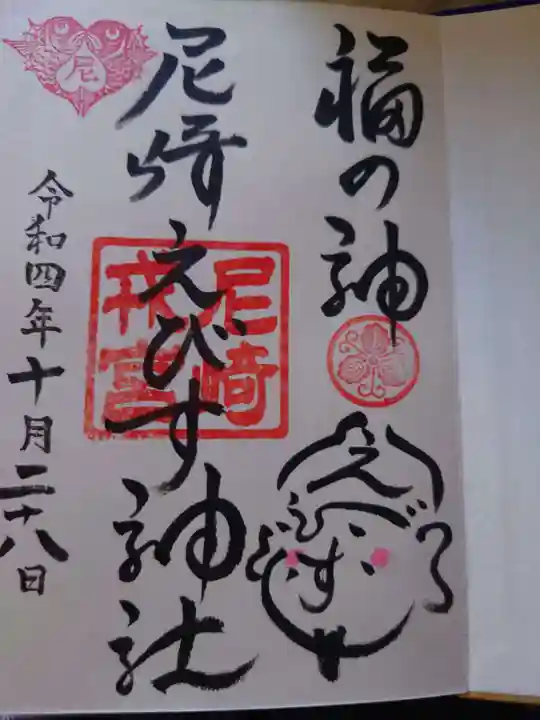 福の神
えびす
尼崎えびす神社
尼崎
戎宮
尼
令和四年十月二十八日